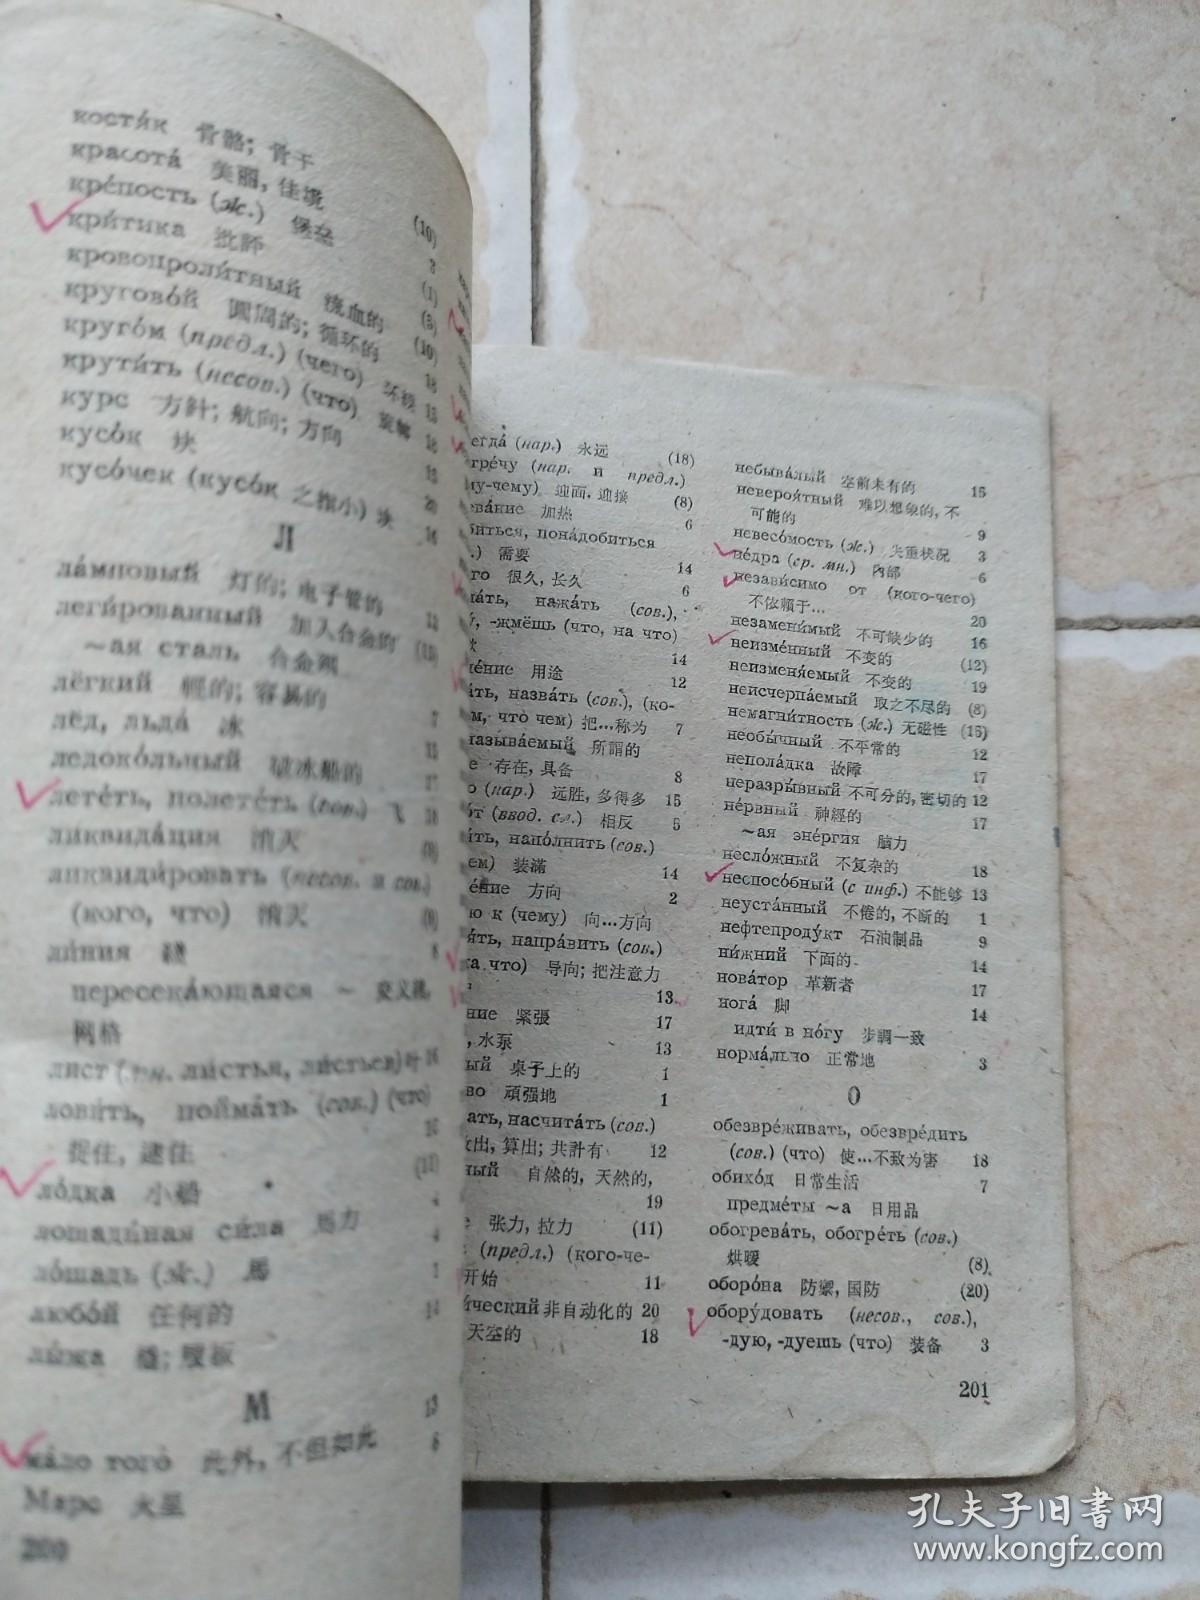 костя́к 骨骼; 骨干
красота́ 美丽, 佳境
кре́пость (ж.) 堡垒 (10)
кри́тика 批評 3
кровопроли́тный 流血的 (1)
кругово́й 圓周的; 循环的
круго́м (предл.) (чего) (10)
крути́ть (несов.) (что) 18
курс 方針; 航向; 方向
кусо́к 块
кусо́чек (кусо́к 之指小) 块
Л
ла́мповый 灯的; 电子管的
леги́рованный 加入合金的
~ая сталь 合金鋼
лёгкий 輕的; 容易的
лёд, льда 冰 7
ледоко́льный 破冰船的
лете́ть, полете́ть (сов.) 飞
ликвида́ция 消灭
ликвиди́ровать (несов. и сов.)
(кого, что) 消灭
ли́ния 綫 8
пересека́ющаяся ~
网格
лист (мн. ли́стья, ли́стьев) 叶 16
лови́ть, пойма́ть (сов.) (что)
捉住, 逮住
ло́дка 小船
лошади́ная си́ла 馬力 4
ло́шадь (ж.) 馬
любо́й 任何的 14
лы́жа
М
ма́ло того́ 此外, 不但如此 8
Марс 火星
200
егда́ (нар.) 永远 (18)
гре́чу (нар. и предл.)
му-чему) 迎面, 迎接 (8)
ева́ние 加热 6
биться, пона́добиться
.) 需要 14
го 很久, 长久 6
ма́ть, нажа́ть (сов.),
у́, -жмёшь (что, на что)
14
че́ние 用途 12
а́ть, назва́ть (сов.), (ко-
м, что чем) 把…称为 7
азыва́емый 所謂的
е 存在, 具备 8
о (нар.) 远胜, 多得多 15
о́т (ввод. сл.) 相反 5
я́ть, напо́лнить (сов.)
ем) 装滿 14
е́ние 方向 2
ю к (чему) 向…方向
я́ть, напра́вить (сов.)
а что) 导向; 把注意力
13
ние 紧張 17
, 水泵 13
ый 桌子上的 1
во 頑强地 1
ать, насчита́ть (сов.)
出, 算出; 共計有 12
ный 自然的, 天然的,
19
е 张力, 拉力 (11)
(предл.) (кого-че-
开始 11
и́ческий 非自动化的 20
天空的 18
небыва́лый 空前未有的 15
невероя́тный 难以想象的, 不
可能的 9
невесо́мость (ж.) 失重状况 3
не́дра (ср. мн.) 內部 6
незави́симо от (кого-чего)
不依賴于… 20
незамени́мый 不可缺少的 16
неизме́нный 不变的 (12)
неизменя́емый 不变的 19
неисчерпа́емый 取之不尽的 (8)
немагни́тность (ж.) 无磁性 (15)
необы́чный 不平常的 12
непола́дка 故障 17
неразры́вный 不可分的, 密切的 12
не́рвный 神經的 17
~ая эне́ргия 脑力
несло́жный 不复杂的 18
неспосо́бный (с инф.) 不能够 13
неуста́нный 不倦的, 不断的 1
нефтепроду́кт 石油制品 9
ни́жний 下面的 14
нова́тор 革新者 17
нога́ 脚 14
идти́ в но́гу 步調一致
норма́льно 正常地 3
О
обезвре́живать, обезвре́дить
(сов.) (что) 使…不致为害 18
обихо́д 日常生活 7
предме́ты ~а 日用品
обогрева́ть, обогре́ть (сов.)
烘暖 (8)
оборо́на 防禦, 国防 (20)
обору́довать (несов., сов.),
-дую, -дуешь (что) 装备 3
201
孔夫子旧书网
www.kongfz.com